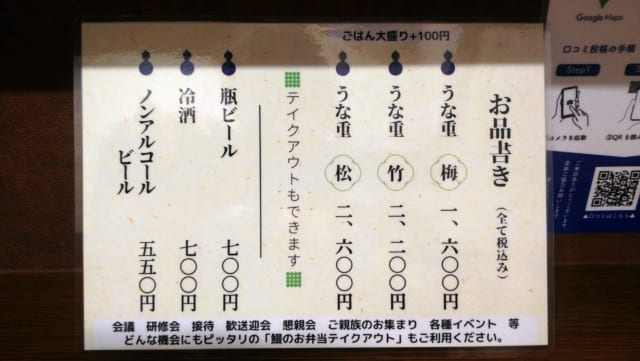 ごはん大盛り+100円
お品書き(全て税込み)
うな重 梅 一、六〇〇円
うな重 竹 二、二〇〇円
うな重 松 二、六〇〇円
テイクアウトもできます
瓶ビール 七〇〇円
冷酒 七〇〇円
ノンアルコール
ビール 五五〇円
会議 研修会 接待 歓送迎会 懇親会 ご親族のお集まり 各種イベント 等
どんな機会にもピッタリの「鰻のお弁当テイクアウト」もご利用ください。
Google Maps
口コミ投稿の手順
Step1
カメラを起動
②QRを読み
▲口コミはこちら▲